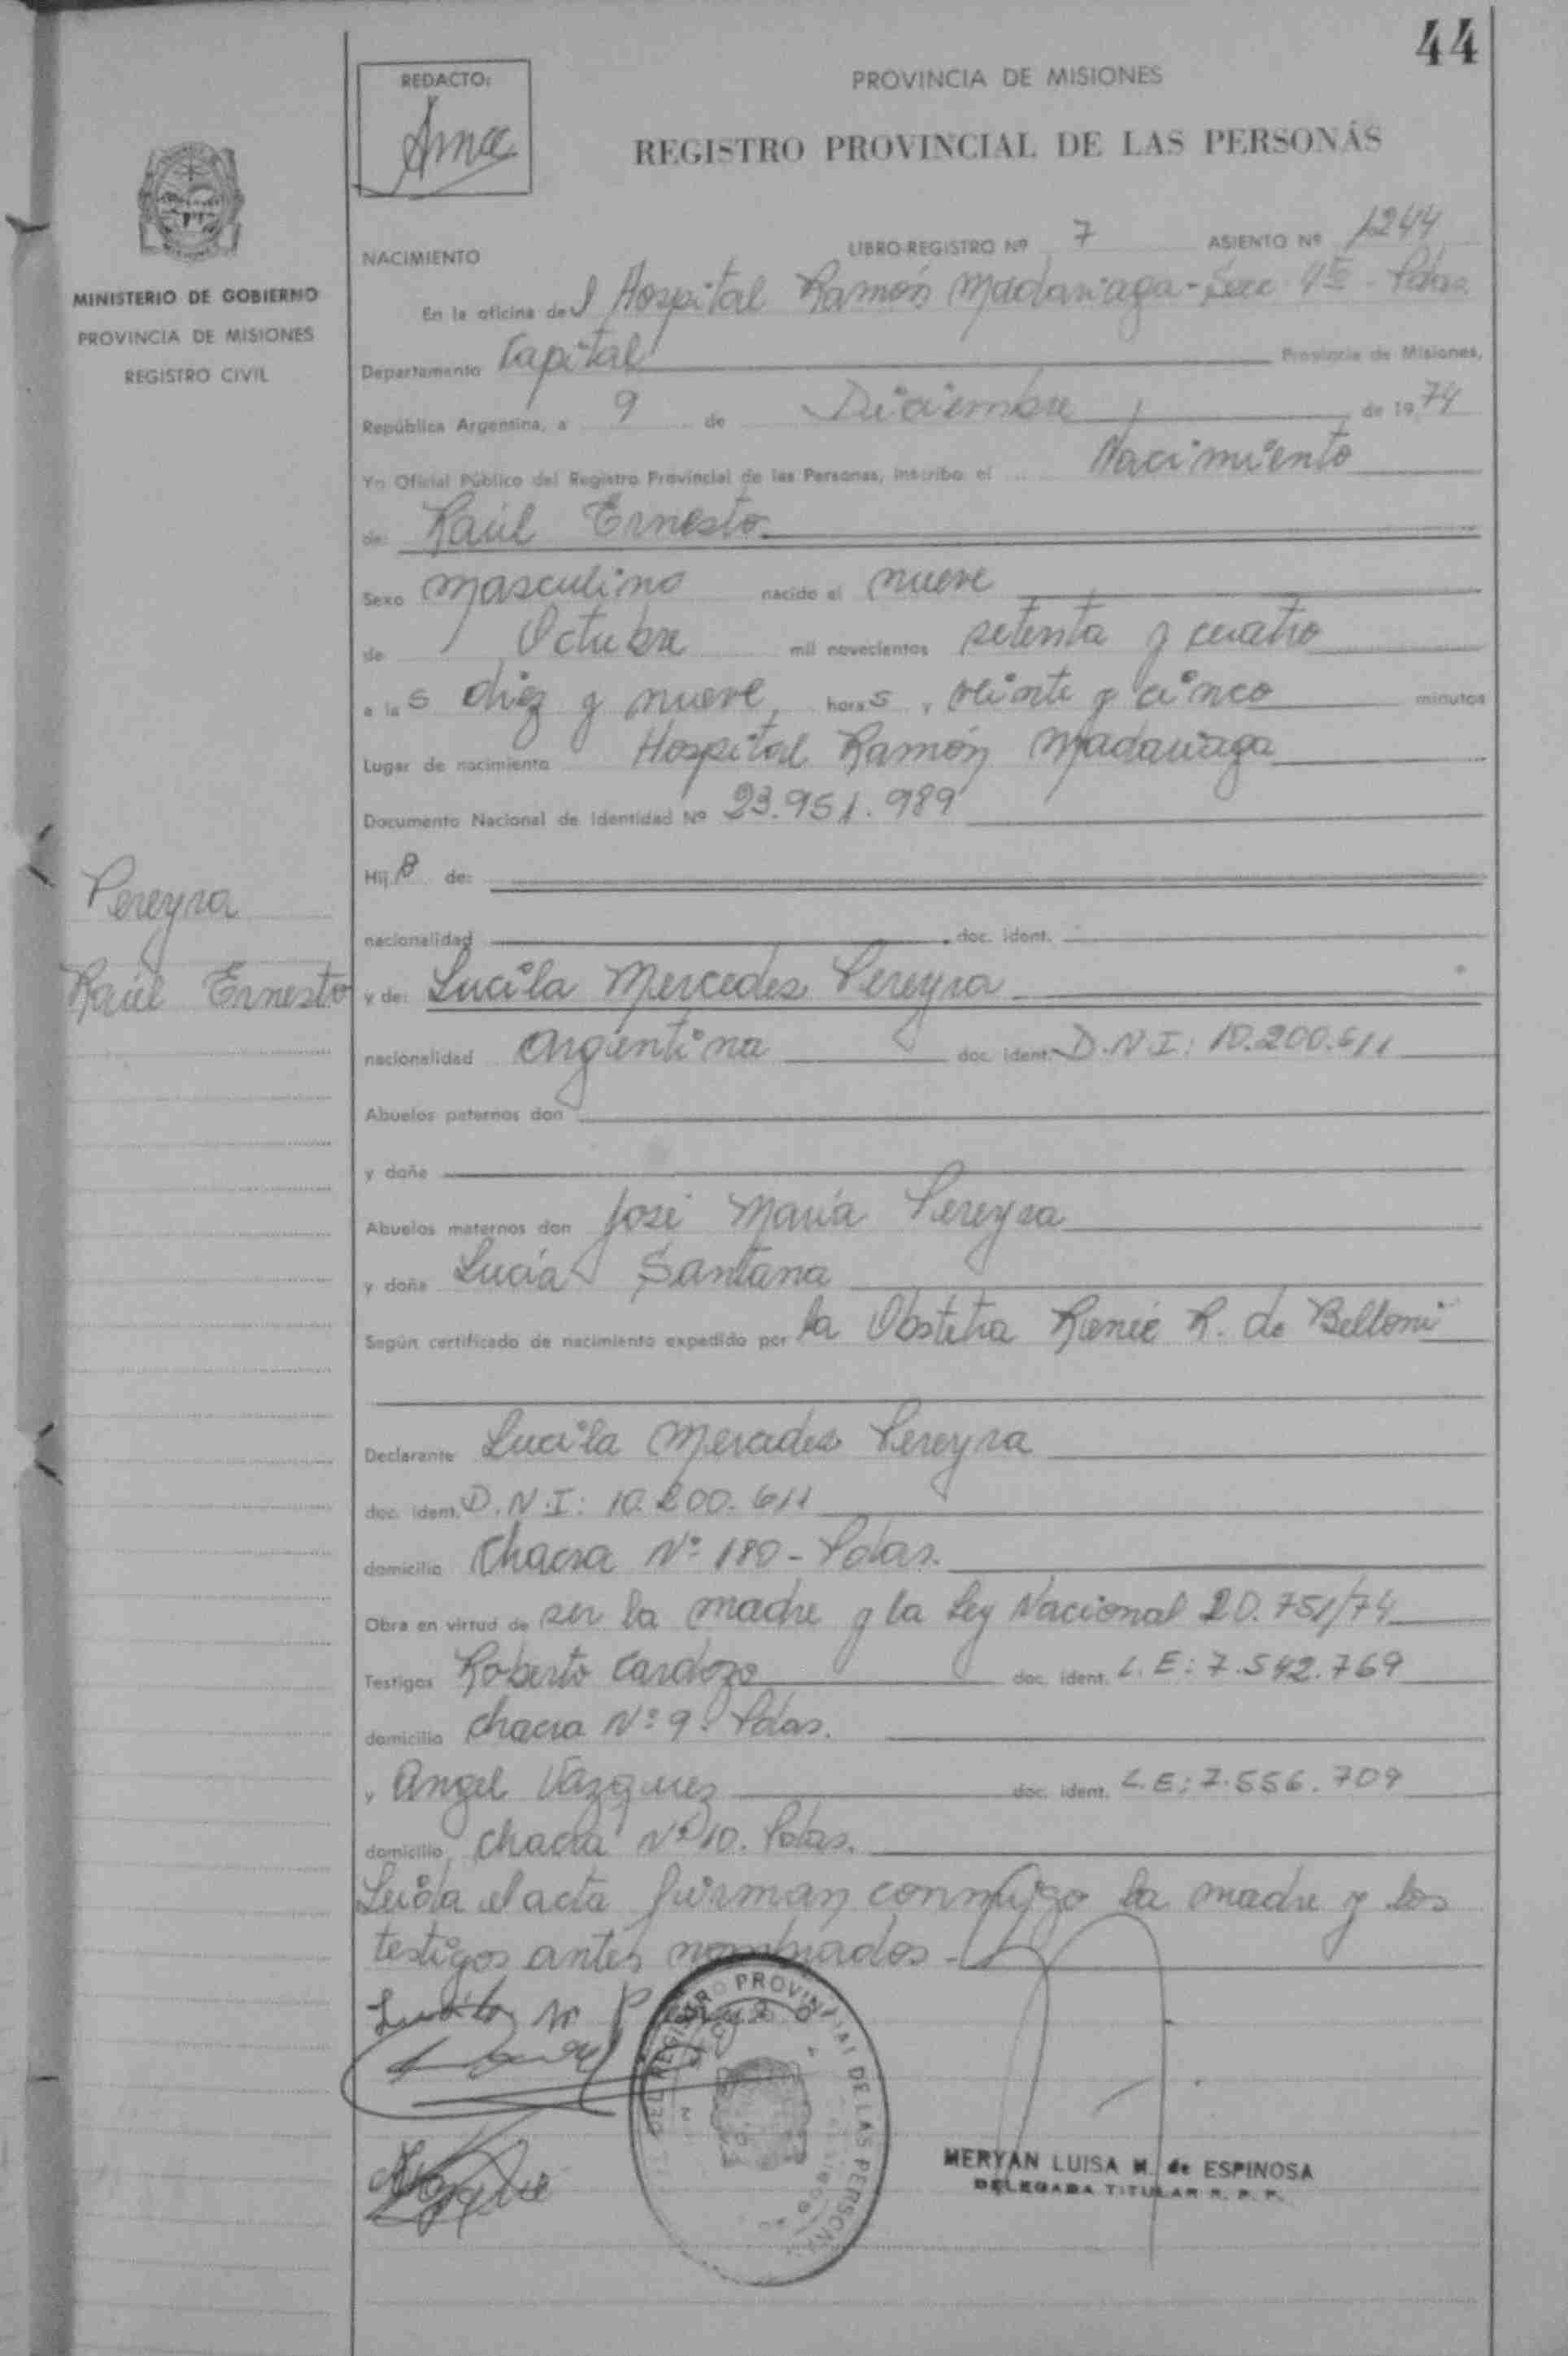 44
REDACTO:
PROVINCIA DE MISIONES
REGISTRO PROVINCIAL DE LAS PERSONAS
NACIMIENTO
LIBRO-REGISTRO Nº 7 ASIENTO Nº 1244
MINISTERIO DE GOBIERNO
PROVINCIA DE MISIONES
REGISTRO CIVIL
En la oficina del Hospital Ramón Madariaga - Secc 4ta - Pdas.
Departamento Capital Provincia de Misiones,
República Argentina, a 9 de Diciembre de 1974
Yo Oficial Público del Registro Provincial de las Personas, inscribo el Nacimiento
de: Raúl Ernesto
Sexo Masculino nacido el nueve
de Octubre mil novecientos setenta y cuatro
a las diez y nueve horas y veinte y cinco minutos
Lugar de nacimiento Hospital Ramón Madariaga
Documento Nacional de Identidad Nº 23.951.989
Hijo de:
nacionalidad doc. ident.
Pereyra
Raúl Ernesto
y de: Lucila Mercedes Pereyra
nacionalidad Argentina doc. ident. D.N.I: 10.200.611
Abuelos paternos don
y doña
Abuelos maternos don José María Pereyra
y doña Lucía Santana
Según certificado de nacimiento expedido por la Obstetra Renée R. de Belloni
Declarante Lucila Mercedes Pereyra
doc. ident. D.N.I: 10.200.611
domicilio Chacra Nº 180 - Pdas.
Obra en virtud de ser la madre y la Ley Nacional 20.751/74
Testigos Roberto Cardozo doc. ident. L.E: 7.542.769
domicilio Chacra Nº 9. Pdas.
y Angel Vazquez doc. ident. L.E: 7.556.709
domicilio Chacra Nº 10. Pdas.
Leida el acta firman conmigo la madre y los
testigos antes nombrados -
Lucila M Pereyra
DEL REGISTRO PROVINCIAL DE LAS PERSONAS
MERYAN LUISA M. de ESPINOSA
DELEGADA TITULAR R. P. P.